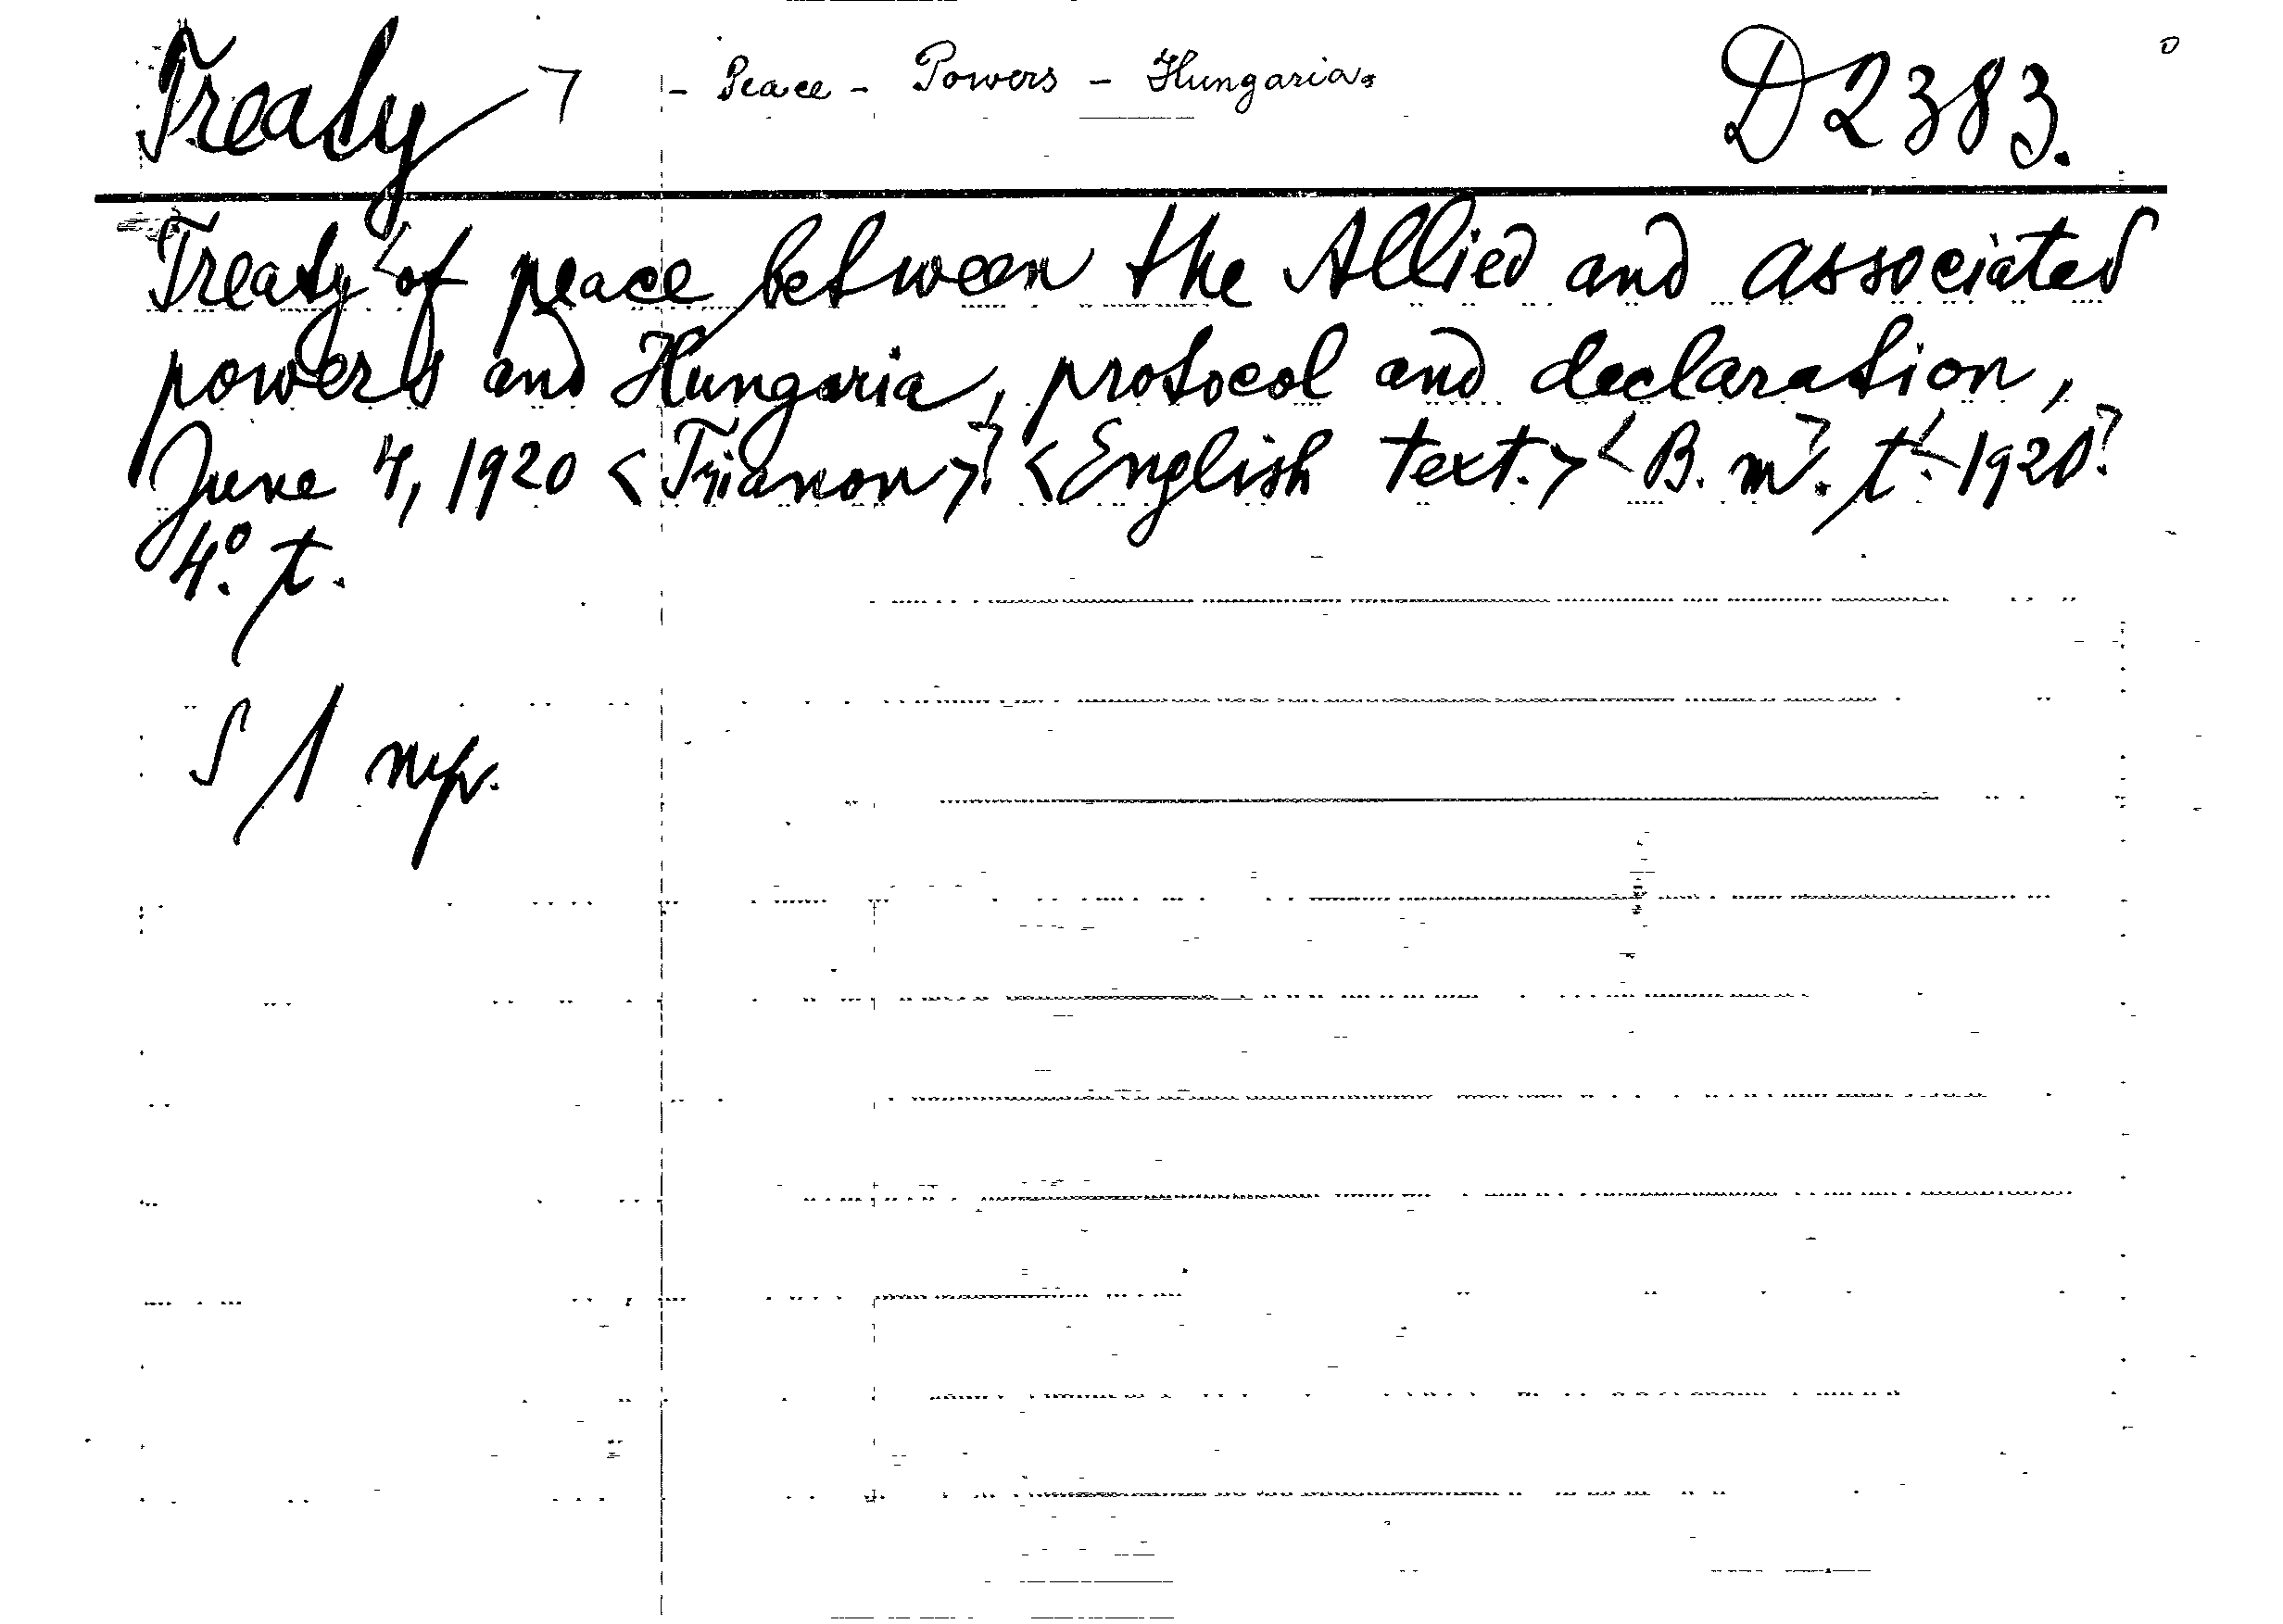 Treaty - Peace - Powers - Hungaria. D2383.
Treaty of peace between the Allied and associated
powers and Hungaria, protocol and declaration,
June 4, 1920 <Trianon>. <English text.> <B. m. t. 1920?
4° t.
S 1 nep.